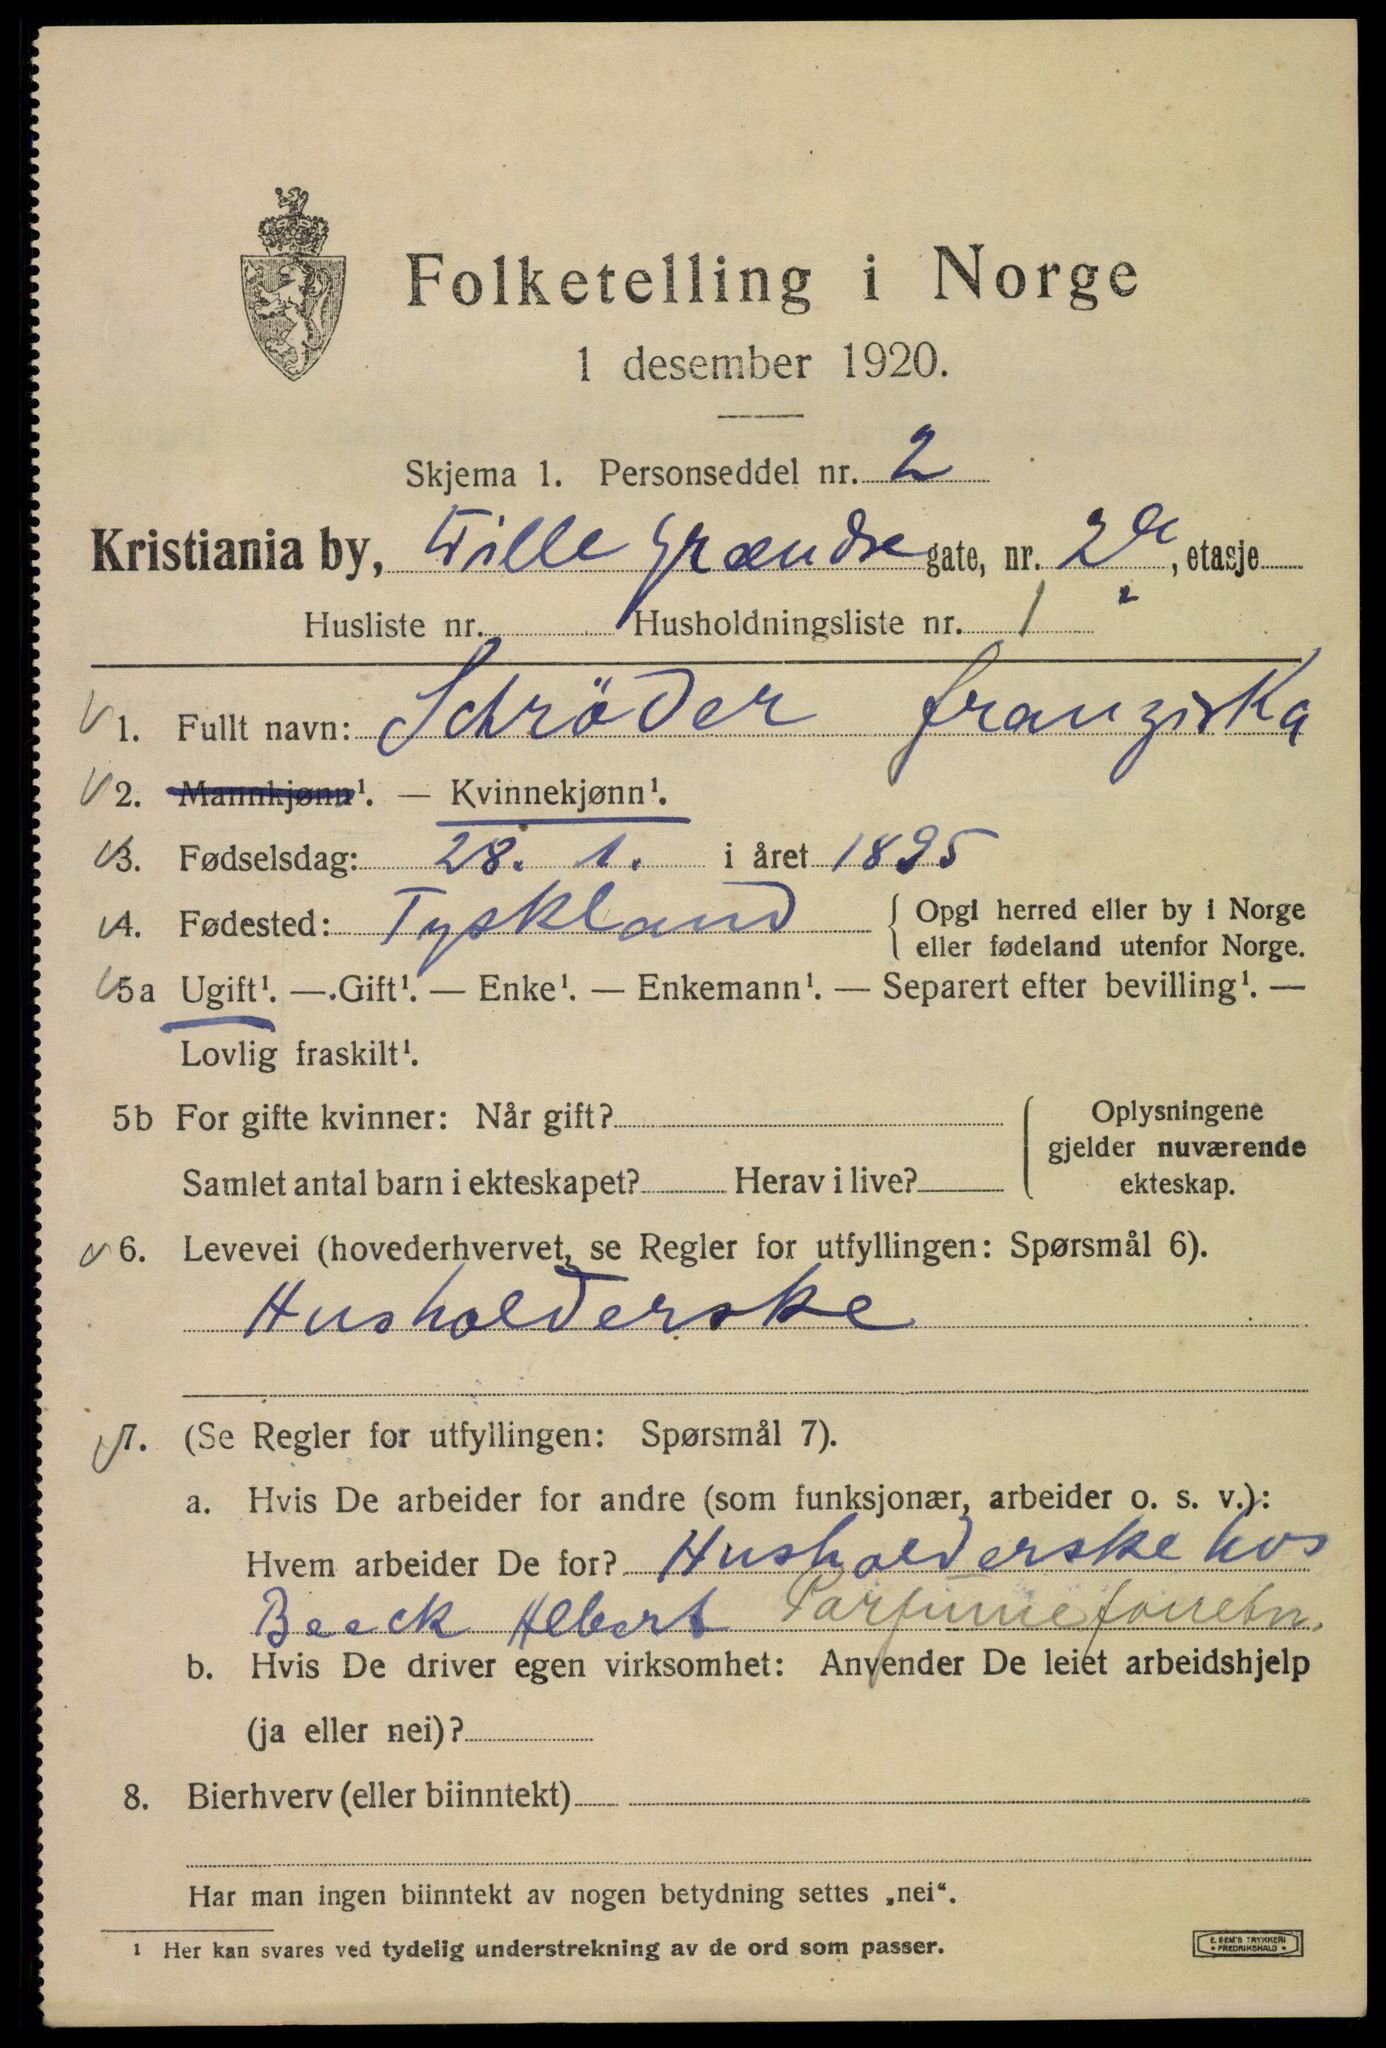 Folketelling i Norge
1 desember 1920.
Skjema 1. Personseddel nr. 2
Kristiania by, Lille Grændse gate, nr. 2, etasje
Husliste nr. Husholdningsliste nr. 1
1. Fullt navn: Schröder Franziska
2. Mannkjønn¹. — Kvinnekjønn¹.
3. Fødselsdag: 28. 1. i året 1895
4. Fødested: Tyskland { Opgi herred eller by i Norge
eller fødeland utenfor Norge.
5a Ugift¹. — Gift¹. — Enke¹. — Enkemann¹. — Separert efter bevilling¹. —
Lovlig fraskilt¹.
5b For gifte kvinner: Når gift? { Oplysningene
gjelder nuværende
Samlet antal barn i ekteskapet? Herav i live? ekteskap.
6. Levevei (hovederhvervet, se Regler for utfyllingen: Spørsmål 6).
Husholderske
7. (Se Regler for utfyllingen: Spørsmål 7).
a. Hvis De arbeider for andre (som funksjonær, arbeider o. s. v.):
Hvem arbeider De for? Husholderske hos
Beeck Albert Parfumeforretn.
b. Hvis De driver egen virksomhet: Anvender De leiet arbeidshjelp
(ja eller nei)?
8. Bierhverv (eller biinntekt)
Har man ingen biinntekt av nogen betydning settes „nei“.
1 Her kan svares ved tydelig understrekning av de ord som passer.
E. SEM'S TRYKKERI
• FREDRIKSHALD •